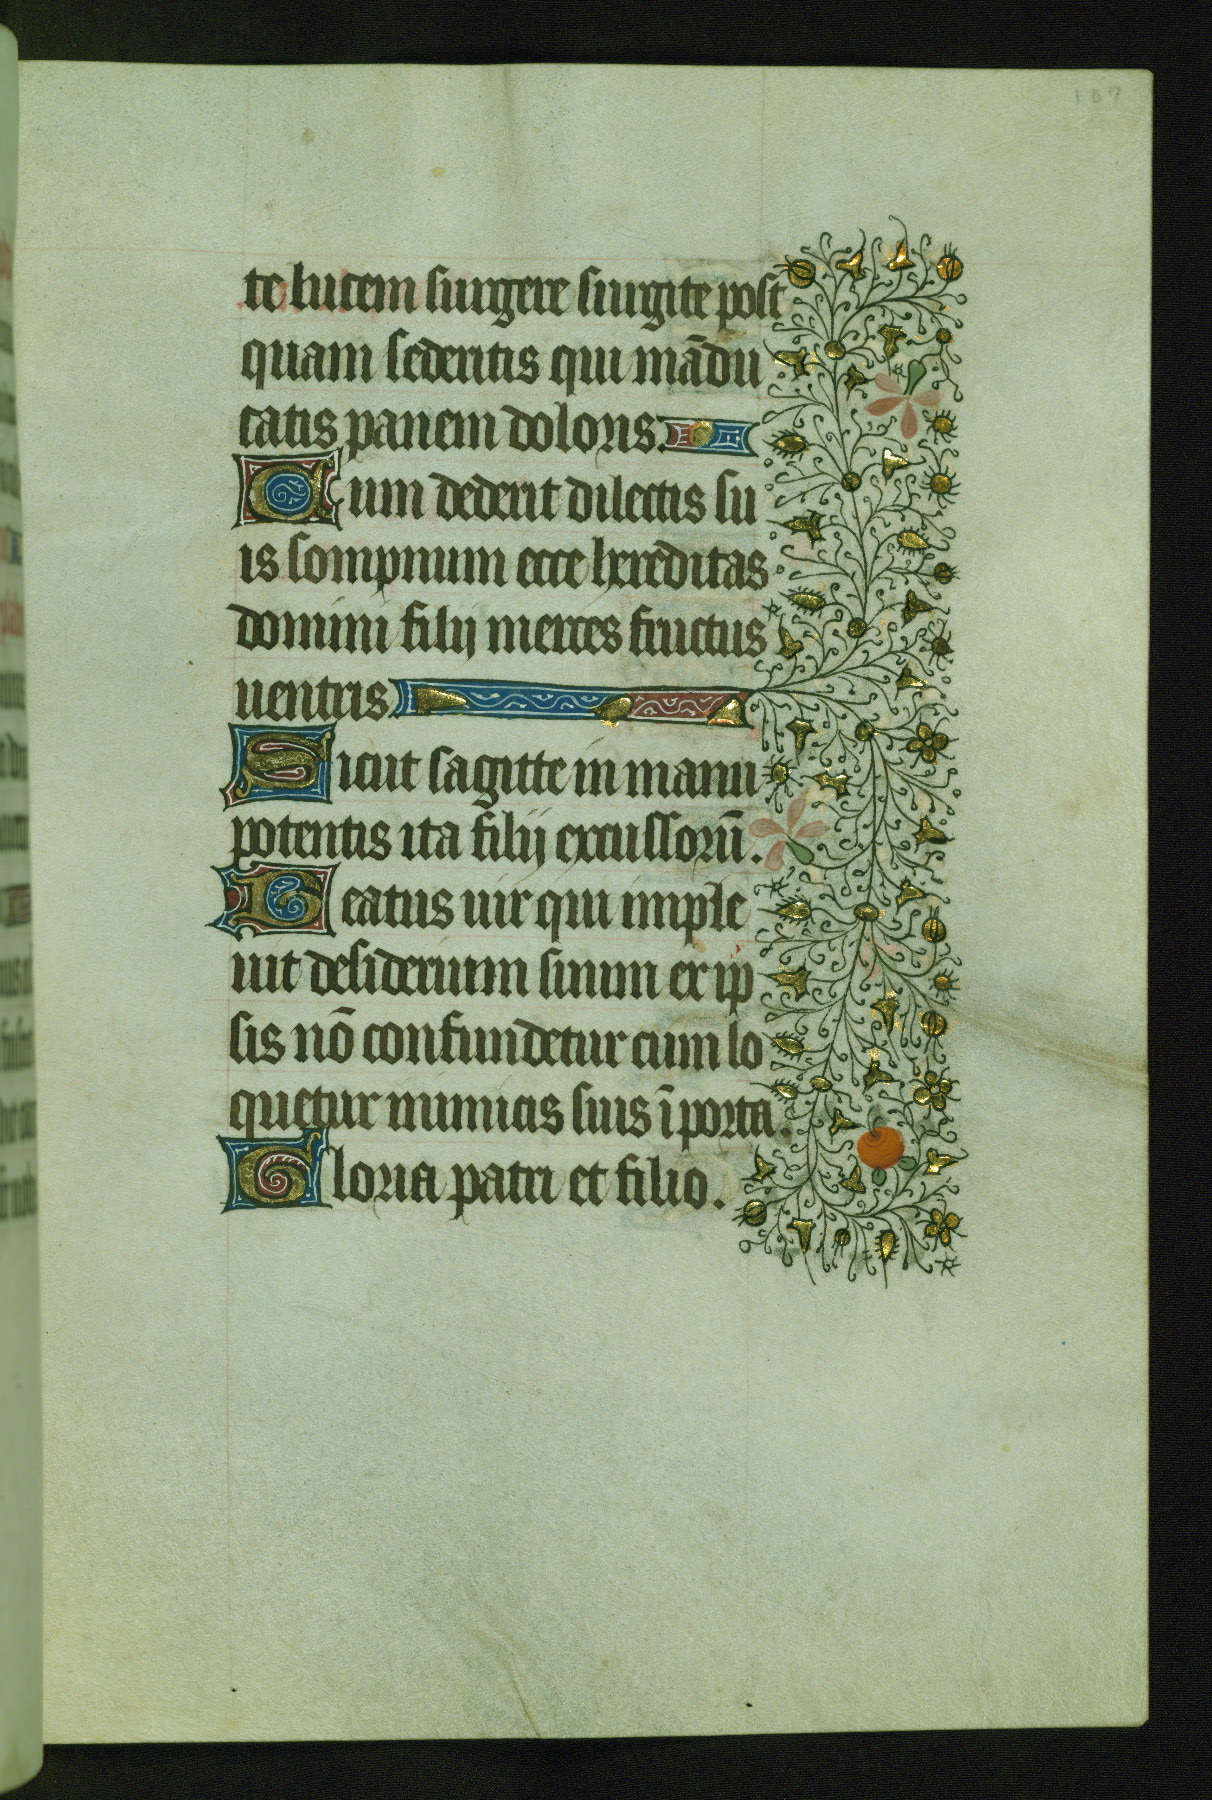 107
te lucem surgere surgite post
quam sederitis qui mādu
catis panem doloris.
Cum dederit dilectis su
is sompnum ecce hereditas
domini filij merces fructus
uentris
Sicut sagitte in manu
potentis ita filij excussorū.
Beatus uir qui imple
uit desiderium suum ex ip
sis nō confundetur cum lo
quetur inimicis suis ī porta.
Gloria patri et filio.